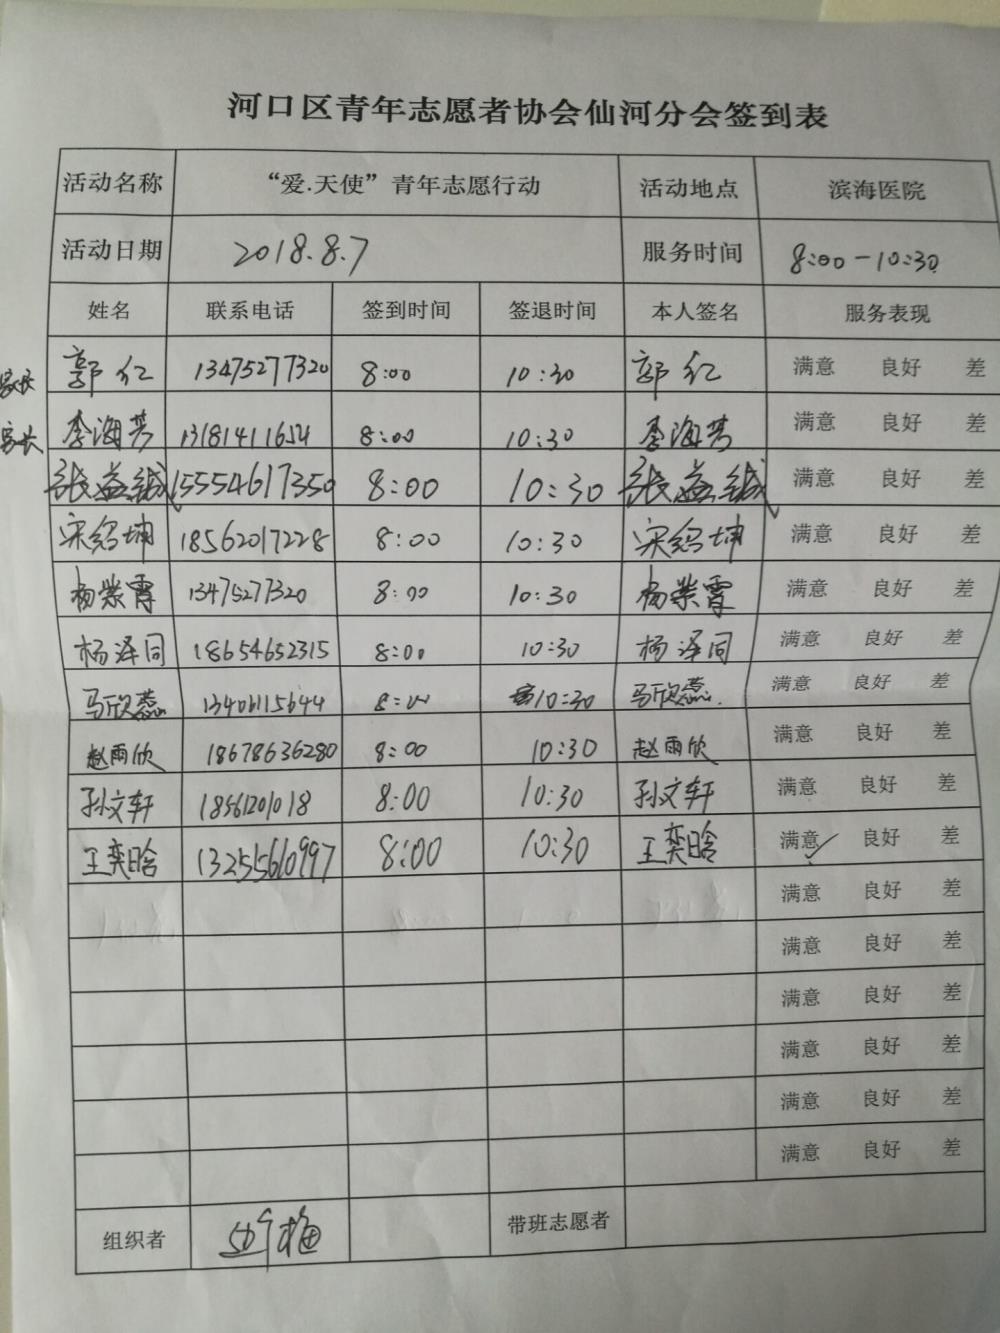 河口区青年志愿者协会仙河分会签到表
活动名称 “爱.天使”青年志愿行动 活动地点 滨海医院
活动日期 2018.8.7 服务时间 8:00-10:30
姓名 联系电话 签到时间 签退时间 本人签名 服务表现
家长 郭红 13475277320 8:00 10:30 郭红 满意 良好 差
家长 李海芳 13181411654 8:00 10:30 李海芳 满意 良好 差
张益铖 15554617350 8:00 10:30 张益铖 满意 良好 差
宋绍坤 18562017228 8:00 10:30 宋绍坤 满意 良好 差
杨紫霄 13475277320 8:00 10:30 杨紫霄 满意 良好 差
杨泽同 18654652315 8:00 10:30 杨泽同 满意 良好 差
马欣蕊 13406115644 8:00 10:30 马欣蕊. 满意 良好 差
赵雨欣 18678636280 8:00 10:30 赵雨欣 满意 良好 差
孙文轩 18561201018 8:00 10:30 孙文轩 满意 良好 差
王奕晗 13255610997 8:00 10:30 王奕晗 满意✓ 良好 差
满意 良好 差
满意 良好 差
满意 良好 差
满意 良好 差
满意 良好 差
满意 良好 差
组织者 梅 带班志愿者